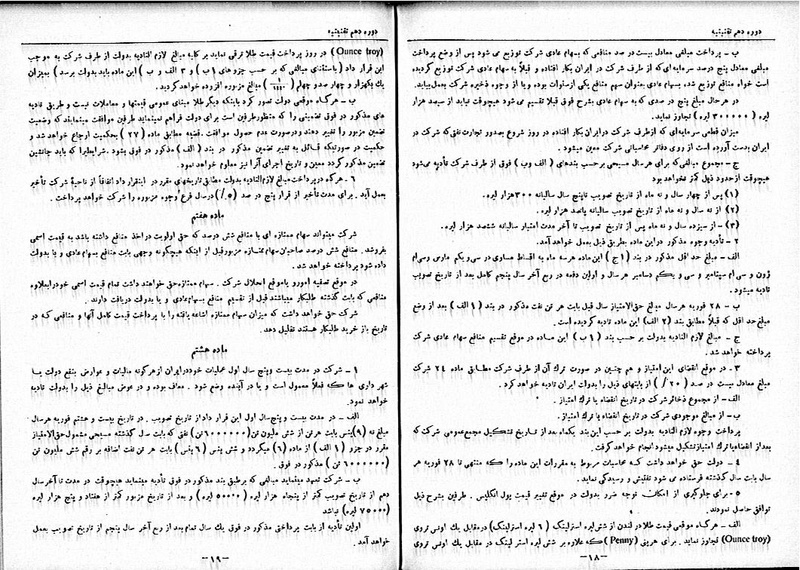 دوره دهم تقنینیه
ب - پرداخت مبلغی معادل بیست در صد منافعی که بسهام عادی شرکت توزیع می شود پس از وضع پرداخت
مبلغی معادل پنج درصد سرمایه‌ای که از طرف شرکت در ایران بکار افتاده و قبلاً به سهام عادی شرکت توزیع گردیده
است خواه منافع توزیع شده بسهام عادی بعنوان سهم منافع یکی از سنوات بوده و یا از وجوه ذخیره شرکت بعمل بیاید.
در هر حال مبلغ پنج در صدی که به سهام عادی بشرح فوق قبلا تقسیم می شود هیچوقت نباید از سیصد هزار
لیره (۳۰۰۰۰۰ لیره) تجاوز نماید.
میزان قطعی سرمایه‌ای که از طرف شرکت در ایران بکار افتاده در روز شروع بصدور تجارت نفتی که شرکت در
ایران بدست آورده است از روی دفاتر محاسباتی شرکت معین میشود.
ج - مجموع مبالغی که برای هر سال مسیحی بر حسب بندهای (الف و ب) فوق از طرف شرکت تأدیه می‌شود
هیچوقت از حدود ذیل کمتر نخواهد بود
(۱) پس از چهار سال و نه ماه از تاریخ تصویب تا پنج سال سالیانه ۳۰۰ هزار لیره.
(۲) از نه سال و نه ماه از تاریخ تصویب سالیانه پانصد هزار لیره.
(۳) - از سیزده سال و نه ماه پس از تاریخ تصویب تا آخر مدت امتیاز سالیانه ششصد هزار لیره.
۲ - تأدیه وجوه مذکور در این ماده بطریق ذیل بعمل خواهد آمد.
الف - مبلغ حد اقل مذکور در بند (۱ ج) این ماده هر سه ماه به اقساط مساوی در سی و یکم مارس و سیام
ژون و سی ام سپتامبر و سی و یکم دسامبر هر سال و اولین دفعه در ربع آخر سال پنجم کامل بعد از تاریخ تصویب
تادیه میشود.
ب - ۲۸ فوریه هر سال مبلغ حق الامتیاز سال قبل بابت هر تن نفت مذکور در بند (۱ الف) بعد از وضع
مبلغ حد اقل که قبلاً مطابق بند (۲ الف) این ماده تأدیه گردیده است.
ج - مبلغ لازم التادیه بدولت بر حسب بند (۱ ب) این ماده در موقع تقسیم منافع سهام عادی شرکت
پرداخته خواهد شد.
۳ - در موقع انقضای این امتیاز و هم چنین در صورت ترک آن از طرف شرکت مطابق ماده ۲۴ شرکت
مبلغ معادل بیست در صد (۲۰٪) از بابتهای ذیل را بدولت ایران تادیه خواهد کرد.
الف - از مجموع ذخائر شرکت در تاریخ انقضاء یا ترک امتیاز.
ب - از مبالغ موجودی شرکت در تاریخ انقضاء یا ترک امتیاز.
پرداخت وجوه لازم التادیه بدولت بر حسب این بند یکماه بعد از تاریخ تشکیل مجمع عمومی شرکت که
بعد از انقضاء یا ترک امتیاز تشکیل میشود انجام خواهد گرفت.
۴ - دولت حق خواهد داشت که محاسبات مربوط به مقررات این ماده را که منتهی تا ۲۸ فوریه هر
سال بابت سال گذشته فرستاده می شود تفتیش و رسیدگی نماید.
۵ - برای جلوگیری از امکان توجه ضرر بدولت در موقع تغییر قیمت پول انگلیس. طرفین بشرح ذیل
توافق حاصل نمودند.
الف - هرگاه موقعی قیمت طلا در لندن از شش لیره استرلینگ (۶ لیره استرلینگ) در مقابل یك اونس تروی
(Ounce troy) تجاوز نماید. برای هر پنی (Penny) که علاوه بر شش لیره استر لینگ در مقابل یك اونس تروی
-۱۸-
دوره دهم تقنینیه
(Ounce troy) در روز پرداخت قیمت طلا ترقی نماید بر کلیه مبالغ لازم التادیه بدولت از طرف شرکت به موجب
این قرار داد (باستثنای مبالغی که بر حسب جزوهای (ب) و ۳ الف و ب) این ماده باید بدولت برسد) بمیزان
یك یکهزار و چهار صد و چهلم (۱/۱۴۴۰) مبالغ مزبوره افزوده خواهد گردید.
ب - هرگاه موقعی دولت تصور کرد باینکه دیگر طلا مبنای عمومی قیمتها و معاملات نیست و طریق تادیه
های مذکور در فوق تضمینی را که منظور طرفین است برای دولت فراهم نمینماید طرفین موافقت مینمایند که وضعیت
تضمین مزبور را تغییر دهند و در صورت عدم حصول موافقت. قضیه مطابق ماده (۲۷) بحکمیت ارجاع خواهد شد و
حکمیت در صورتیکه قائل به تغییر تضمین مذکور در بند (الف) مذکور در فوق بشود. شرایطی را که باید جانشین
تضمین مذکور گردد معین و تاریخ اجرای آنرا نیز معلوم خواهد نمود.
۶ - هرگاه در پرداخت مبالغ لازم التادیه بدولت مطابق تاریخهای مقرر در این قرار داد اتفاقاً از ناحیهٔ شرکت تأخیر
بعمل آید. برای مدت تأخیر از قرار پنج در صد (۵٪) در سال فرع وجوه مزبوره را شرکت خواهد پرداخت.
ماده هفتم
شرکت میتواند سهام ممتازه ای با منافع شش درصد که حق اولویت در اخذ منافع داشته باشد به قیمت اسمی
بفروشد. منافع شش درصد صاحبان سهام ممتازه مزبور قبل از اینکه هیچگونه وجهی بابت منافع بسهام عادی و یا بدولت
داده شود پرداخته خواهد شد.
در موقع تصفیه امور و یا موقع انحلال شرکت. سهام ممتازه حق خواهند داشت تمام قیمت اسمی خود را بعلاوه
منافعی که بابت گذشته طلبکار میباشند قبل از تقسیم منافع بسهام عادی و یا بدولت دریافت دارند.
شرکت حق خواهد داشت که میزان سهام ممتازه اشاعه یافته را با پرداخت قیمت کامل آنها و منافعی که در
تاریخ باز خرید طلبکار هستند تقلیل دهد.
ماده هشتم
۱ - شرکت در مدت بیست و پنج سال اول عملیات خود در ایران از هر گونه مالیات و عوارض بنفع دولت یا
شهر داری ها که فعلاً معمول است و یا در آینده وضع شود. معاف بوده و در عوض مبالغ ذیل را بدولت تادیه
خواهد نمود.
الف - در مدت بیست و پنج سال اول این قرار داد از تاریخ تصویب. در تاریخ بیست و هشتم فوریه هر سال
مبلغ نه (۹) پنس بابت هر تن از شش ملیون تن (۶۰۰۰۰۰۰ تن) نفتی که بابت سال گذشته مسیحی مشمول حق الامتیاز
مقرر در جزو (۱ الف) از ماده (۶) میگردد و شش پنس (۶ پنس) بابت هر تن نفت اضافه بر رقم شش ملیون تن
(۶۰۰۰۰۰۰ تن) مذکور در فوق.
ب - شرکت تعهد مینماید مبالغی که بر طبق بند مذکور در فوق تأدیه مینماید هیچوقت در مدت تا آخر سال
دهم از تاریخ تصویب کمتر از پنجاه هزار لیره (۵۰۰۰۰ لیره) و بعد از تاریخ مزبور کمتر از هفتاد و پنج هزار لیره
(۷۵۰۰۰ لیره) نباشد
اولین تأدیه از بابت پرداختی مذکور در فوق یك سال تمام بعد از ربع آخر سال پنجم از تاریخ تصویب بعمل
خواهد آمد.
-۱۹-